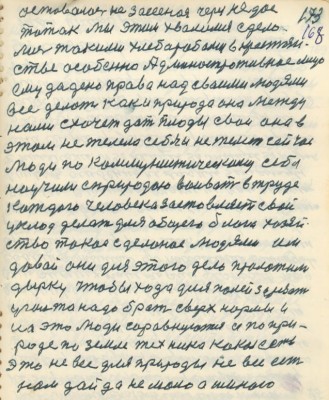 173
168
осталось на засеяная черг не до
то так мы этим хвалимся сдело
лись такими хлебарабами в крестян-
стве особенно Административное лицо
ему дадено права над своими людями
все делать как и природа она между
нами схочет дать плоды свои она в
этом не желела себя и не желеет сейчас
люди по Коммунистическому себя
научили с природою воювать в труде
каждого человека заставляет свой
уклод делать для общего блага хозяй
ство такое сделоное людями им
давай они для этого дело проложим
дырку чтобы хода для полей
надо брать сверх нормы и
на это люди соравнуются и по при-
роде по земле техника как есть
это не все для природы не все ест
нам дай да не мало а много